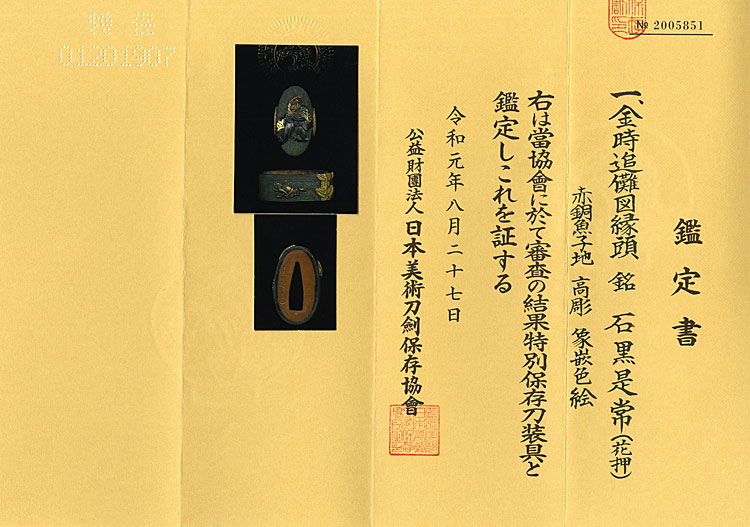 № 2005851
鑑定書
一、金時追儺図縁頭 銘 石黒是常(花押)
赤銅魚子地 高彫 象嵌色絵
右は當協會に於て審査の結果特別保存刀装具と
鑑定しこれを証する
令和元年八月二十七日
公益財團法人 日本美術刀劍保存協會
特保
01201907